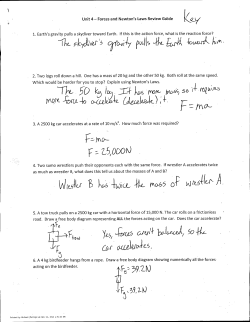 Unit 4 – Forces and Newton's Laws Review Guide
Key
1. Earth's gravity pulls a skydiver toward Earth. If this is the action force, what is the reaction force?
The skydiver's gravity pulls the Earth toward him.
2. Two logs roll down a hill. One has a mass of 20 kg and the other 50 kg. Both roll at the same speed.
Which would be harder for you to stop? Explain using Newton's Laws.
The 50 kg log. It has more mass, so it requires
more force to accelerate (decelerate) it.
F=ma
3. A 2500 kg car accelerates at a rate of 10 m/s². How much force was required?
F=ma
F=25,000N
4. Two sumo wrestlers push their opponents each with the same force. If wrestler A accelerates twice
as much as wrestler B, what does this tell us about the masses of A and B?
Wrestler B has twice the mass of wrestler A
5. A tow truck pulls on a 2500 kg car with a horizontal force of 15,000 N. The car rolls on a frictionless
road. Draw a free body diagram representing ALL the forces acting on the car. Does the car accelerate?
Yes, forces aren't balanced, so the
car accelerates.
6. A 4 kg birdfeeder hangs from a rope. Draw a free body diagram showing numerically all the forces
acting on the birdfeeder.
=39.2N
Fg=39.2N